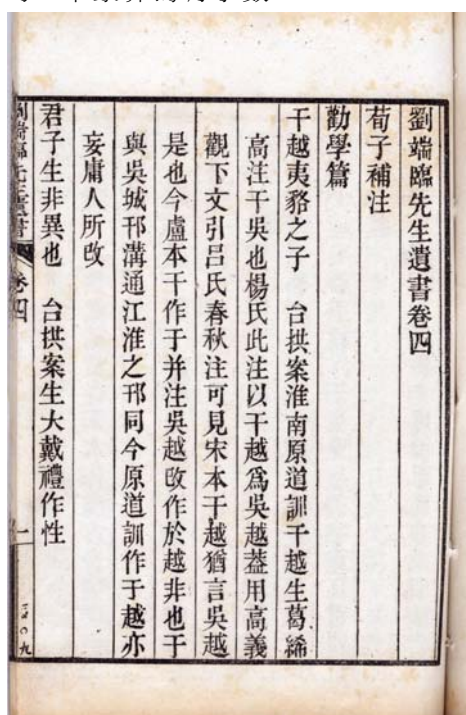 劉端臨先生遺書卷四
荀子補注
勸學篇
干越夷貉之子　台拱案淮南原道訓干越生葛絺
高注干吳也楊氏此注以干越爲吳越葢用高義
觀下文引呂氏春秋注可見宋本干越猶言吳越
是也今盧本干作于并注吳越改作於越非也于
與吳城邗溝通江淮之邗同今原道訓作于越亦
妄庸人所改
君子生非異也　台拱案生大戴禮作性
劉端臨先生遺書
卷四
一